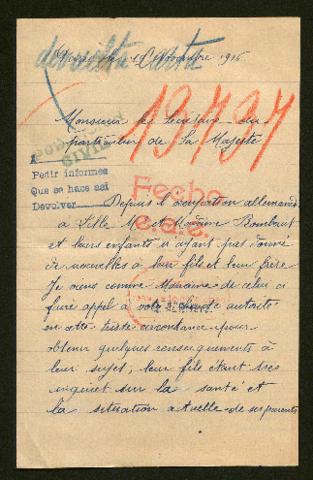 devuelta carta
Novembre 1916
Monsieur le Secrétaire du
particulier de Sa Majesté
19737
CIVIL
Pedir informes
Que se hace así
Devolver
Fecha
Depuis l'occupation allemande
à Lille M. et Madame Rombaut
et leurs enfants n'ayant pas donné
de nouvelles à leur fils et leur frère
Je viens comme Marraine de celui ci
faire appel à votre haute autorité
en cette triste circonstance pour
obtenir quelques renseignements à
leur sujet, leur fils étant très
inquiet sur la santé et
la situation actuelle de ses parents